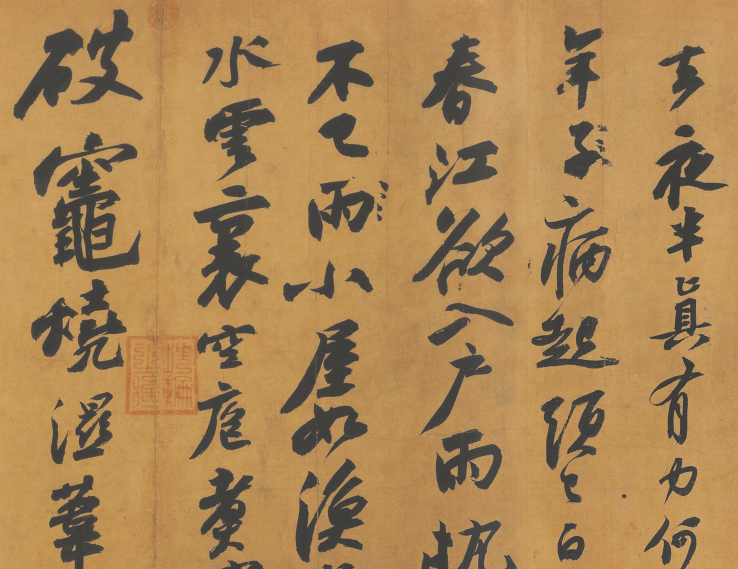 去夜半真有力何
年子病起須已白
春江欲入戶雨勢
不已雨小屋如漁
水雲裏空庖煮
破竈燒濕葦